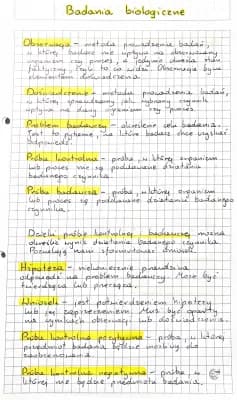 Badania biologiczne
Obserwacja - metoda prowadzenia badań,
w której badacz nie wpływa na obserwowany
organizm czy proces, a jedynie określa stan
faktyczny, czyli to co widzi. Obserwacja bywa
elementem doświadczenia.
Doświadczenie - metoda prowadzenia badań,
w której sprawdzamy jaki wybrany czynnik
wpływa na dany organizm czy proces.
Problem badawczy - określenie celu badania.
Jest to pytanie, na które badacz chce uzyskać
odpowiedź.
Próba kontrolna - próba, w której organizm
lub proces nie są poddawane działaniu
badanego czynnika.
Próba badawcza - próba, w której organizm
lub proces są poddawane działaniu badanego
czynnika.
Dzięki próbie kontrolnej i badawczej można
określić wynik działania badanego czynnika.
Pozwalają nam sformułować wnioski.
Hipoteza - niekoniecznie prawdziwa
odpowiedź na problem badawczy. Może być
twierdząca lub przecząca.
Wniosek - jest potwierdzeniem hipotezy
lub jej zaprzeczeniem. Musi być oparty
na wynikach obserwacji lub doświadczenia.
Próba kontrolna pozytywna - próba, w której
przedmiot badania będzie możliwy do
zaobserwowania.
Próba kontrolna negatywna - próba w
której nie będzie przedmiotu badania.